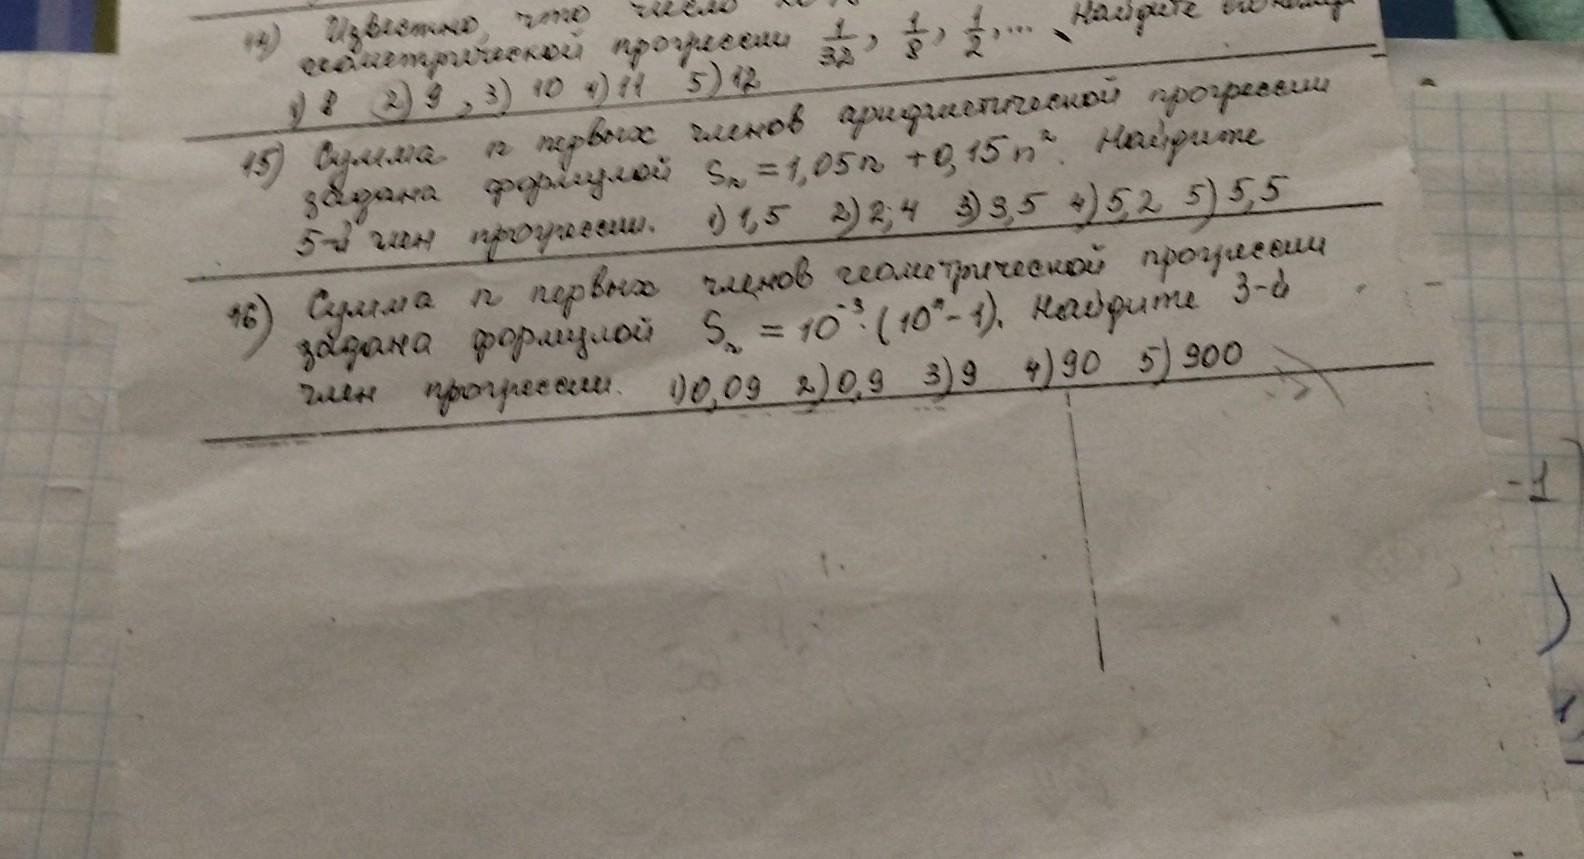 14) Известно, что число
геометрической прогрессии 1/32, 1/8, 1/2, ... Найдите его номер
1) 8 2) 9, 3) 10 4) 11 5) 12
15) Сумма n первых членов арифметической прогрессии
задана формулой Sn = 1,05n + 0,15n². Найдите
5-й член прогрессии. 1) 1,5 2) 2,4 3) 3,5 4) 5,2 5) 5,5
16) Сумма n первых членов геометрической прогрессии
задана формулой Sn = 10⁻³·(10ⁿ-1). Найдите 3-й
член прогрессии. 1) 0,09 2) 0,9 3) 9 4) 90 5) 900
-1
)